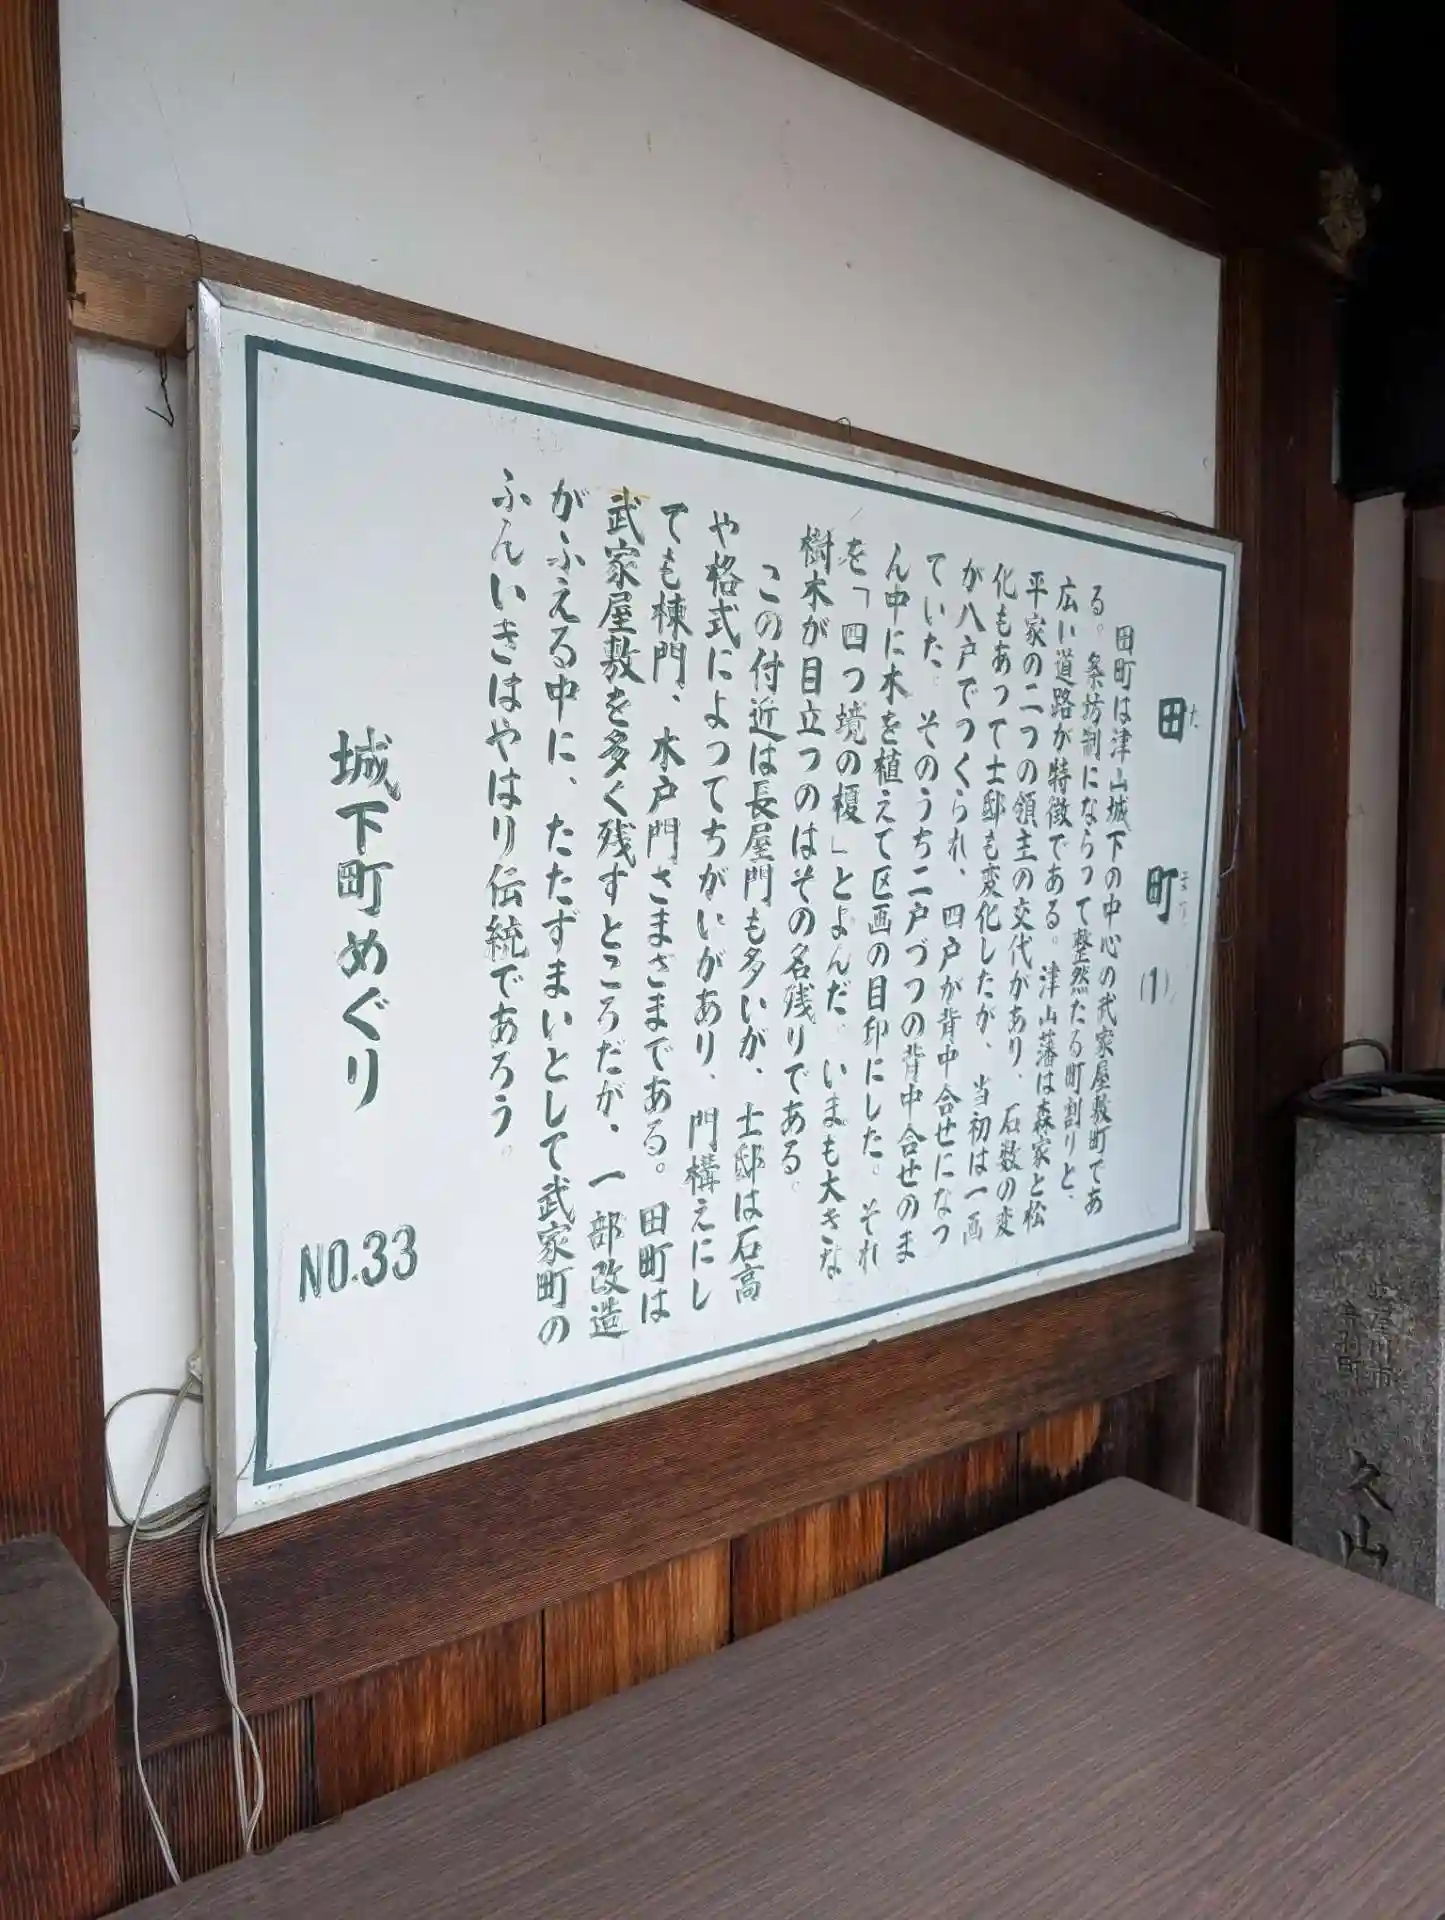 田町(1)
たまち
田町は津山城下の中心の武家屋敷町であ
る。条坊制にならって整然たる町割りと、
広い道路が特徴である。津山藩は森家と松
平家の二つの領主の交代があり、石数の変
化もあって士邸も変化したが、当初は一画
が八戸でつくられ、四戸が背中合せになっ
ていた。そのうち二戸づつの背中合せのま
ん中に木を植えて区画の目印にした。それ
を「四つ境の榎」とよんだ。いまも大きな
樹木が目立つのはその名残りである。
この付近は長屋門も多いが、士邸は石高
や格式によってちがいがあり、門構えにし
ても棟門、木戸門さまざまである。田町は
武家屋敷を多く残すところだが、一部改造
がふえる中に、たたずまいとして武家町の
ふんいきはやはり伝統であろう。
城下町めぐり
NO.33
久山